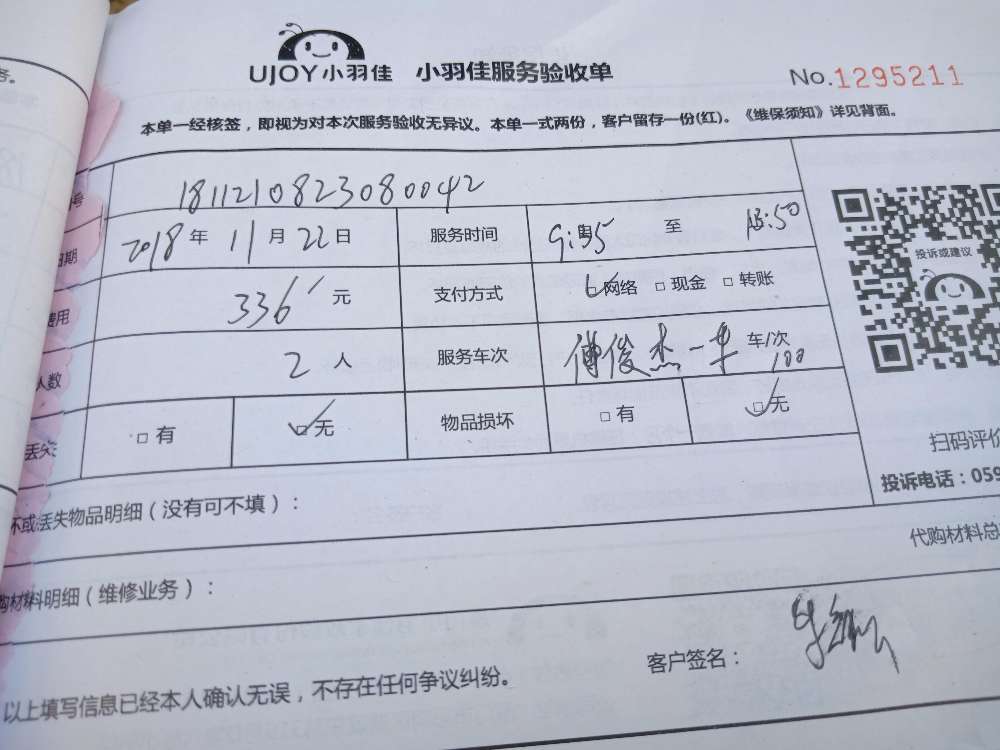 务。
UJOY小羽佳 小羽佳服务验收单 No.1295211
本单一经核签，即视为对本次服务验收无异议。本单一式两份，客户留存一份(红)。《维保须知》详见背面。
号 1811210823080042
日期 2018年11月22日 服务时间 至
费用 336 元 支付方式 □网络 □现金 □转账
人数 2人 服务车次 傅俊杰一车 车/次
丢失 □有 □无 物品损坏 □有 □无
投诉或建议
扫码评价
投诉电话：059
坏或丢失物品明细（没有可不填）：
代购材料总
购材料明细（维修业务）：
客户签名：
以上填写信息已经本人确认无误，不存在任何争议纠纷。